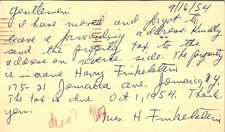 Gentlemen: 9/16/54
I have moved and forgot to
leave a forwarding address. Kindly
send the property tax to the
address on reverse side. The property
is in name Harry Finkelstein
175-21 Jamaica ave. Jamaica
The tax is due Oct 1, 1954. Thank
you.
Mrs. H Finkelstein